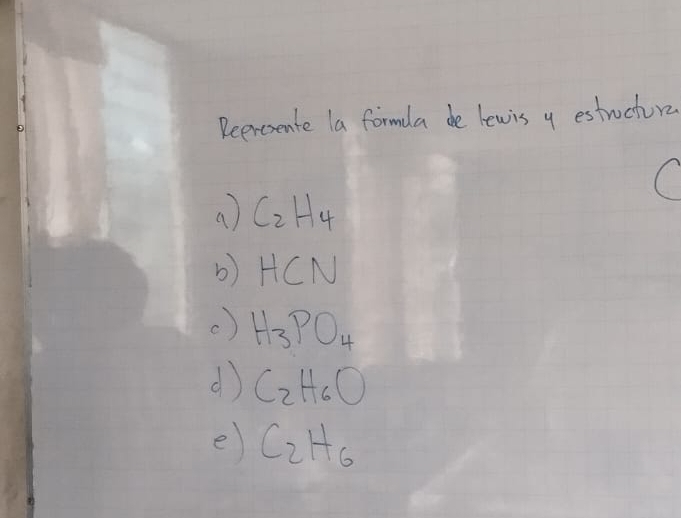 Represente la fórmula de lewis y estructura
C
a) C₂H₄
b) HCN
c) H₃PO₄
d) C₂H₆O
e) C₂H₆